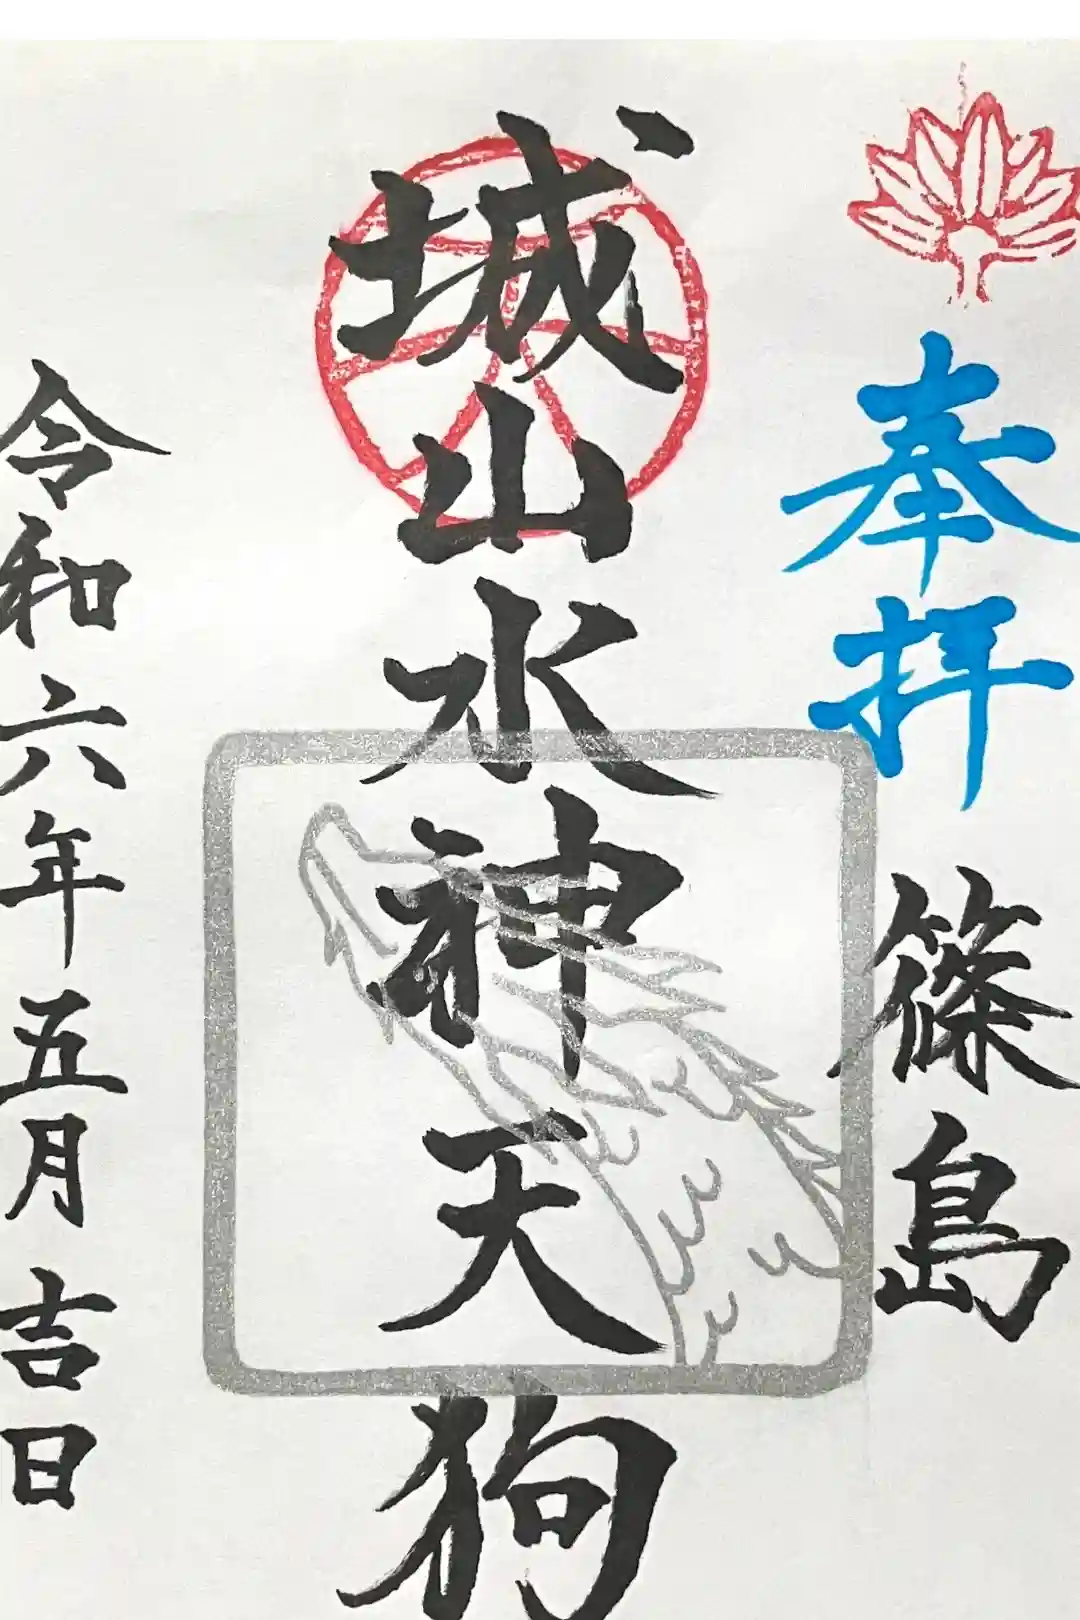 奉拝 篠島
城山水神天狗
令和六年五月吉日